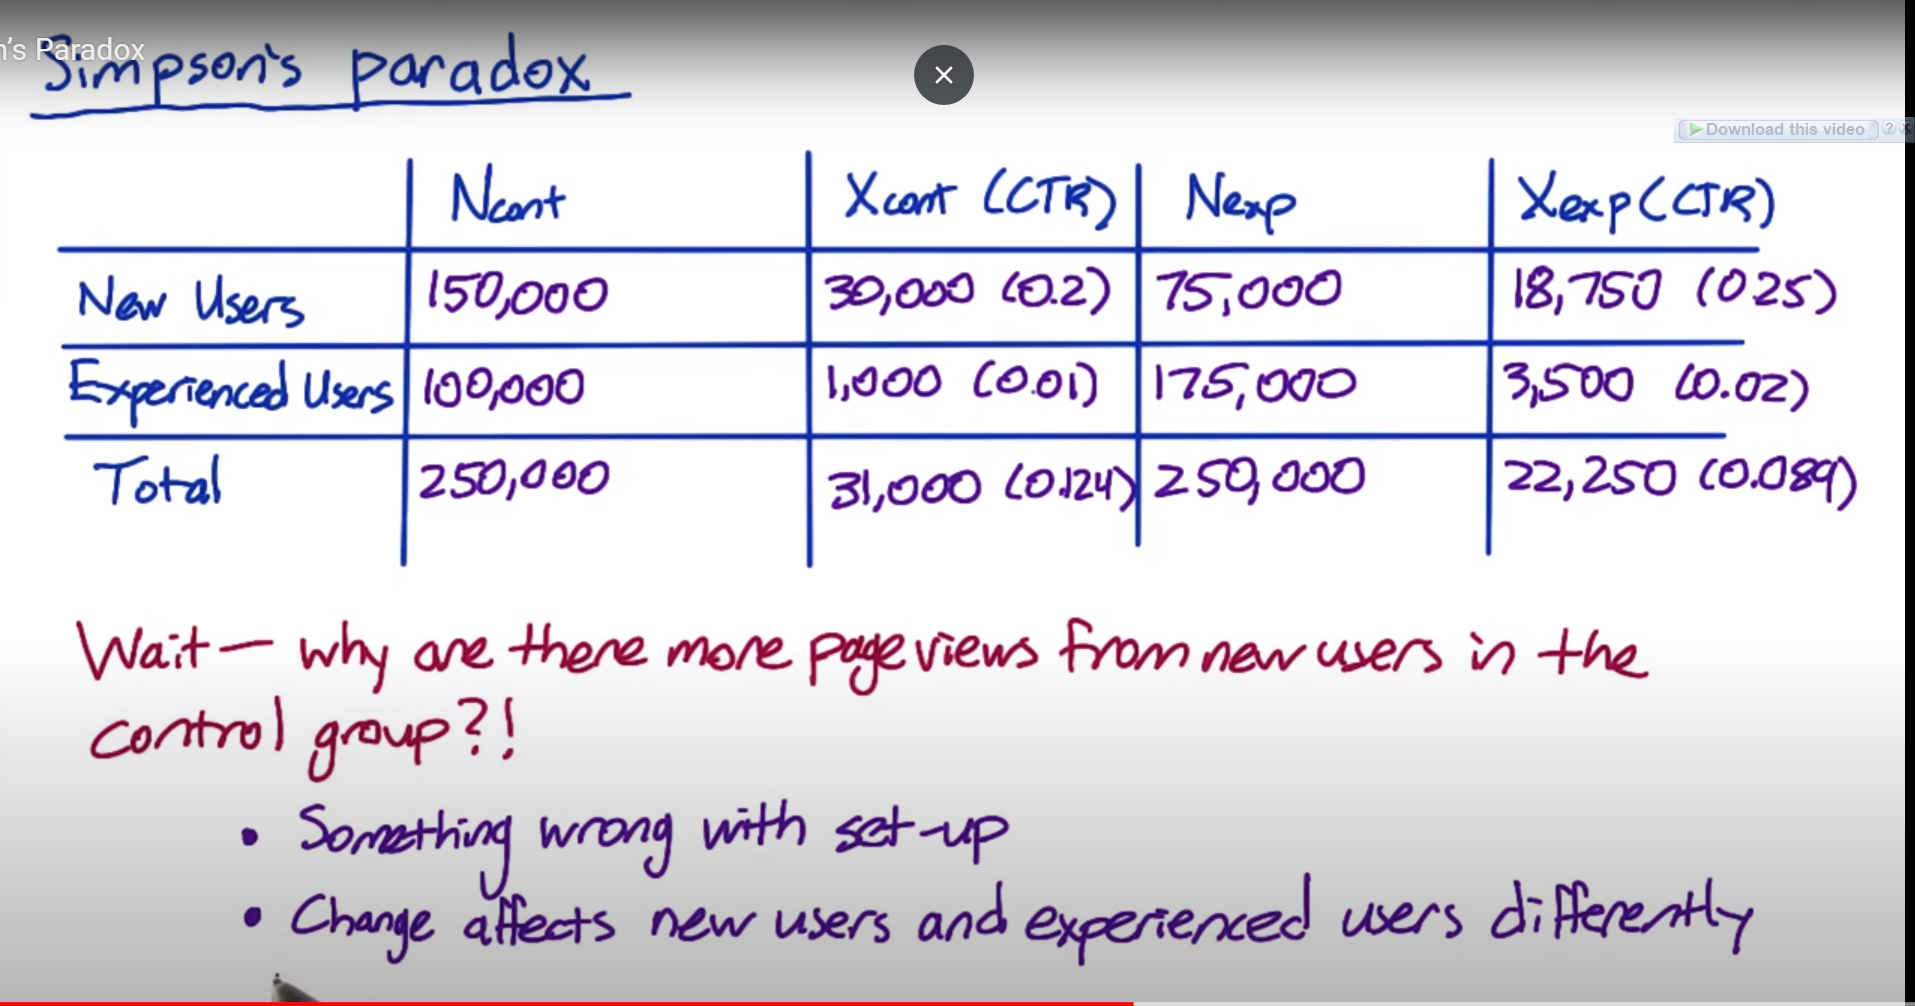 n's Paradox
Simpson's paradox
Download this video ? x
Ncont Xcont (CTR) Nexp Xexp (CTR)
New Users 150,000 30,000 (0.2) 75,000 18,750 (0.25)
Experienced Users 100,000 1,000 (0.01) 175,000 3,500 (0.02)
Total 250,000 31,000 (0.124) 250,000 22,250 (0.089)
Wait — why are there more pageviews from new users in the
control group?!
• Something wrong with set-up
• Change affects new users and experienced users differently